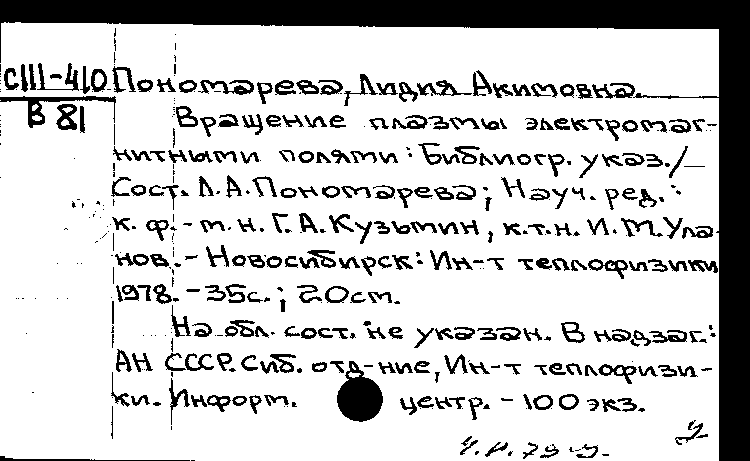 СIII-410 Пономарева, Лидия Акимовна.
В 81
Вращение плазмы электромаг-
нитными полями: Библиогр. указ./
Сост. Л.А. Пономарева; Науч. ред.:
к. ф.-м. н. Г. А. Кузьмин, к.т.н. И.М. Ула
нов. - Новосибирск: Ин-т теплофизики
1978. - 35с.; 20см.
На обл. сост. не указан. В надзаг.:
АН СССР. Сиб. отд-ние, Ин-т теплофизи-
ки. Информ. центр. - 100 экз.